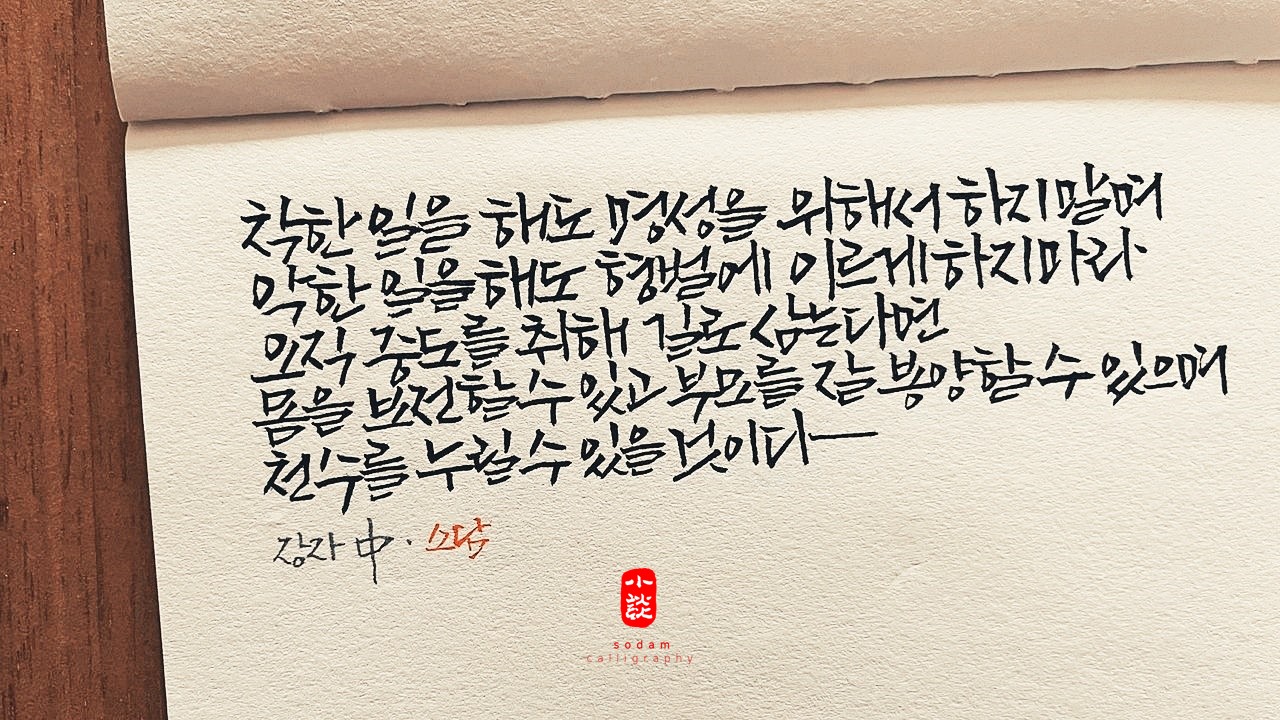 착한 일을 해도 명성을 위해서 하지말며
악한 일을 해도 형벌에 이르게 하지마라
오직 중도를 취해 길로 삼는다면
몸을 보전할 수 있고 부모를 잘 봉양할 수 있으며
천수를 누릴 수 있을 것이다
장자 中 · 소담
小談
sodam
calligraphy